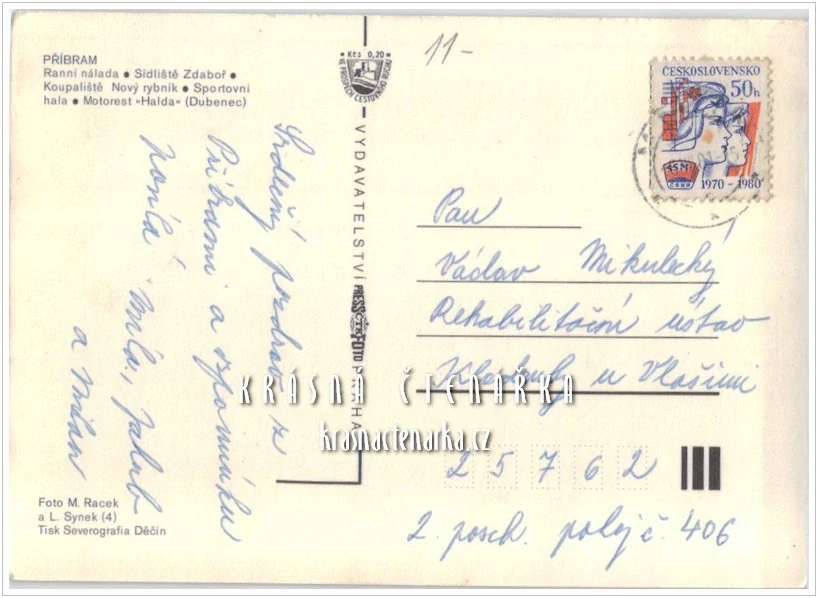 PŘÍBRAM
Ranní nálada • Sídliště Zdaboř •
Koupaliště Nový rybník • Sportovní
hala • Motorest »Halda« (Dubenec)
Kčs 0,20
VE PROSPĚCH CESTOVNÍHO RUCHU
11-
ČESKOSLOVENSKO
50h
SSM
ČSSR
1970 - 1980
Srdečný pozdrav z
Příbrami a vzpomínku
posílá Míla, Jakub
a Milan
VYDAVATELSTVÍ PRESSFOTO PRAHA
ČTK
Pan
Václav Mikulecký
Rehabilitační ústav
Kladruby u Vlašimi
25762
2. posch. pokoj č. 406
KRÁSNÁ ČTENÁŘKA
krasnactenarka.cz
Foto M. Racek
a L. Synek (4)
Tisk Severografia Děčín